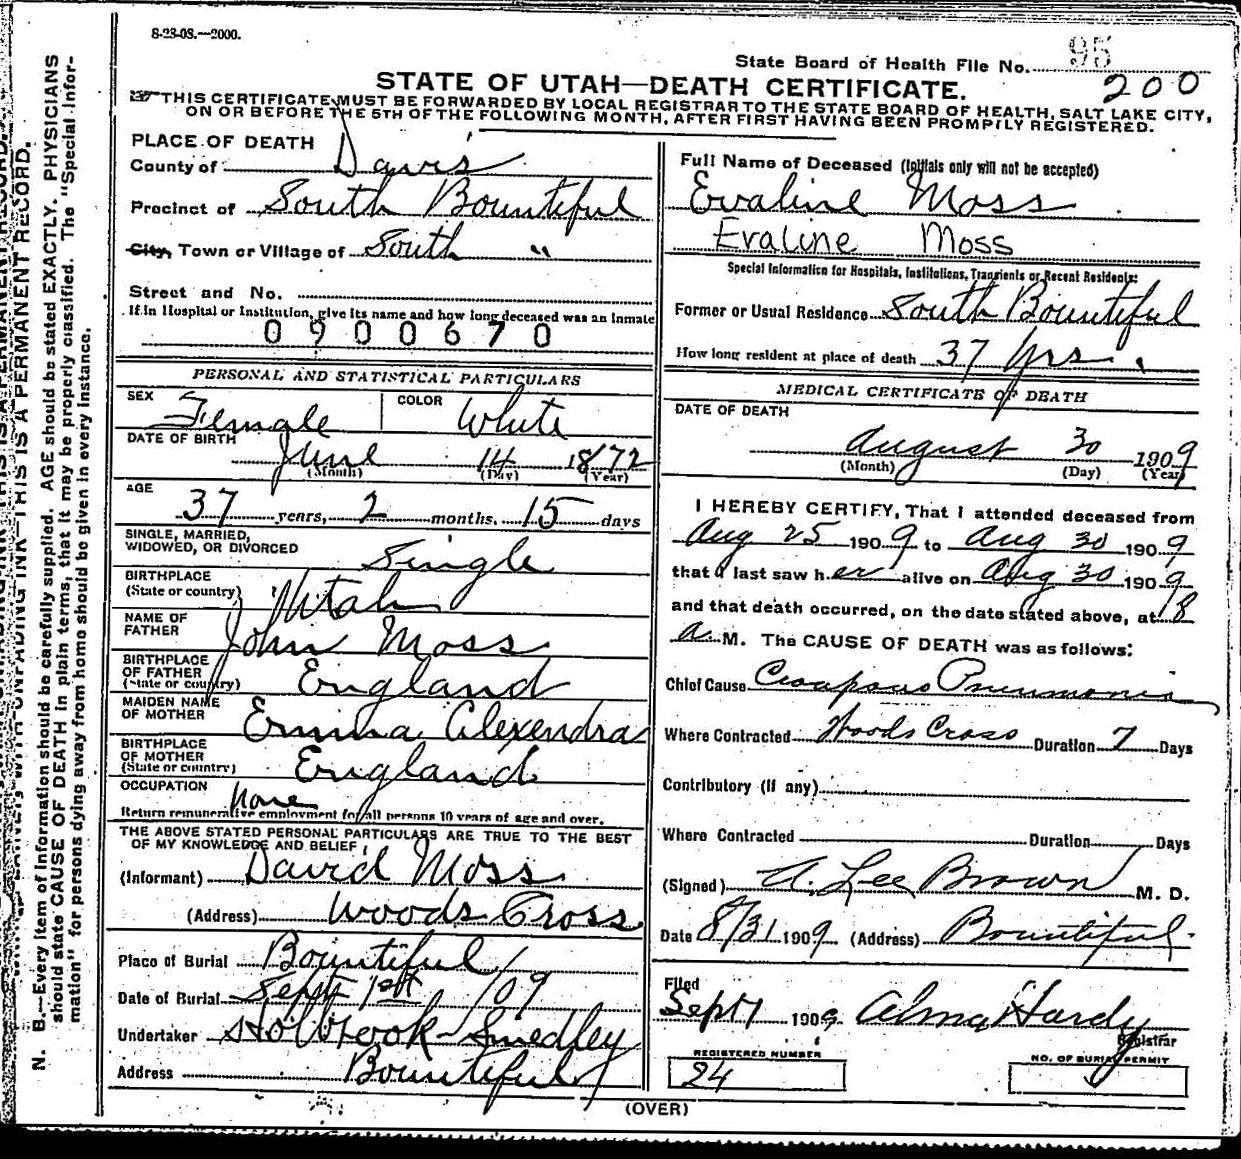 8-23-08.—2000.
State Board of Health File No. 95
200
STATE OF UTAH—DEATH CERTIFICATE.
THIS CERTIFICATE MUST BE FORWARDED BY LOCAL REGISTRAR TO THE STATE BOARD OF HEALTH, SALT LAKE CITY,
ON OR BEFORE THE 5TH OF THE FOLLOWING MONTH, AFTER FIRST HAVING BEEN PROMPTLY REGISTERED.
PLACE OF DEATH
County of Davis
Precinct of South Bountiful
City, Town or Village of South "
Street and No.
If in Hospital or Institution, give its name and how long deceased was an Inmate
0900670
PERSONAL AND STATISTICAL PARTICULARS
SEX Female COLOR White
DATE OF BIRTH
June 14 1872
(Month) (Day) (Year)
AGE
37 years, 2 months, 15 days
SINGLE, MARRIED,
WIDOWED, OR DIVORCED Single
BIRTHPLACE
(State or country) Utah
NAME OF
FATHER John Moss
BIRTHPLACE
OF FATHER
(State or country) England
MAIDEN NAME
OF MOTHER Emma Alexendra
BIRTHPLACE
OF MOTHER
(State or country) England
OCCUPATION
None
Return remunerative employment for all persons 10 years of age and over.
THE ABOVE STATED PERSONAL PARTICULARS ARE TRUE TO THE BEST
OF MY KNOWLEDGE AND BELIEF
(Informant) David Moss
(Address) Woods Cross
Place of Burial Bountiful
Date of Burial Sept 1st /09
Undertaker Holbrook-Smedley
Address Bountiful
Full Name of Deceased (Initials only will not be accepted)
Evaline Moss
Evaline Moss
Special Information for Hospitals, Institutions, Transients or Recent Residents:
Former or Usual Residence South Bountiful
How long resident at place of death 37 yrs.
MEDICAL CERTIFICATE OF DEATH
DATE OF DEATH
August 30 1909
(Month) (Day) (Year)
I HEREBY CERTIFY, That I attended deceased from
Aug 25 1909 to Aug 30 1909
that I last saw her alive on Aug 30 1909
and that death occurred, on the date stated above, at 8
a. M. The CAUSE OF DEATH was as follows:
Chief Cause Croupous Pneumonia
Where Contracted Woods Cross Duration 7 Days
Contributory (if any)
Where Contracted Duration Days
(Signed) A. Lee Brown M. D.
Date 8/31 1909 (Address) Bountiful
Filed
Sept 1 1909 Alma Hardy
Registrar
REGISTERED NUMBER
24
NO. OF BURIAL PERMIT
(OVER)
THIS IS A PERMANENT RECORD.
N. B.—Every item of information should be carefully supplied. AGE should be stated EXACTLY. PHYSICIANS
should state CAUSE OF DEATH in plain terms, that it may be properly classified. The "Special Infor-
mation" for persons dying away from home should be given in every instance.